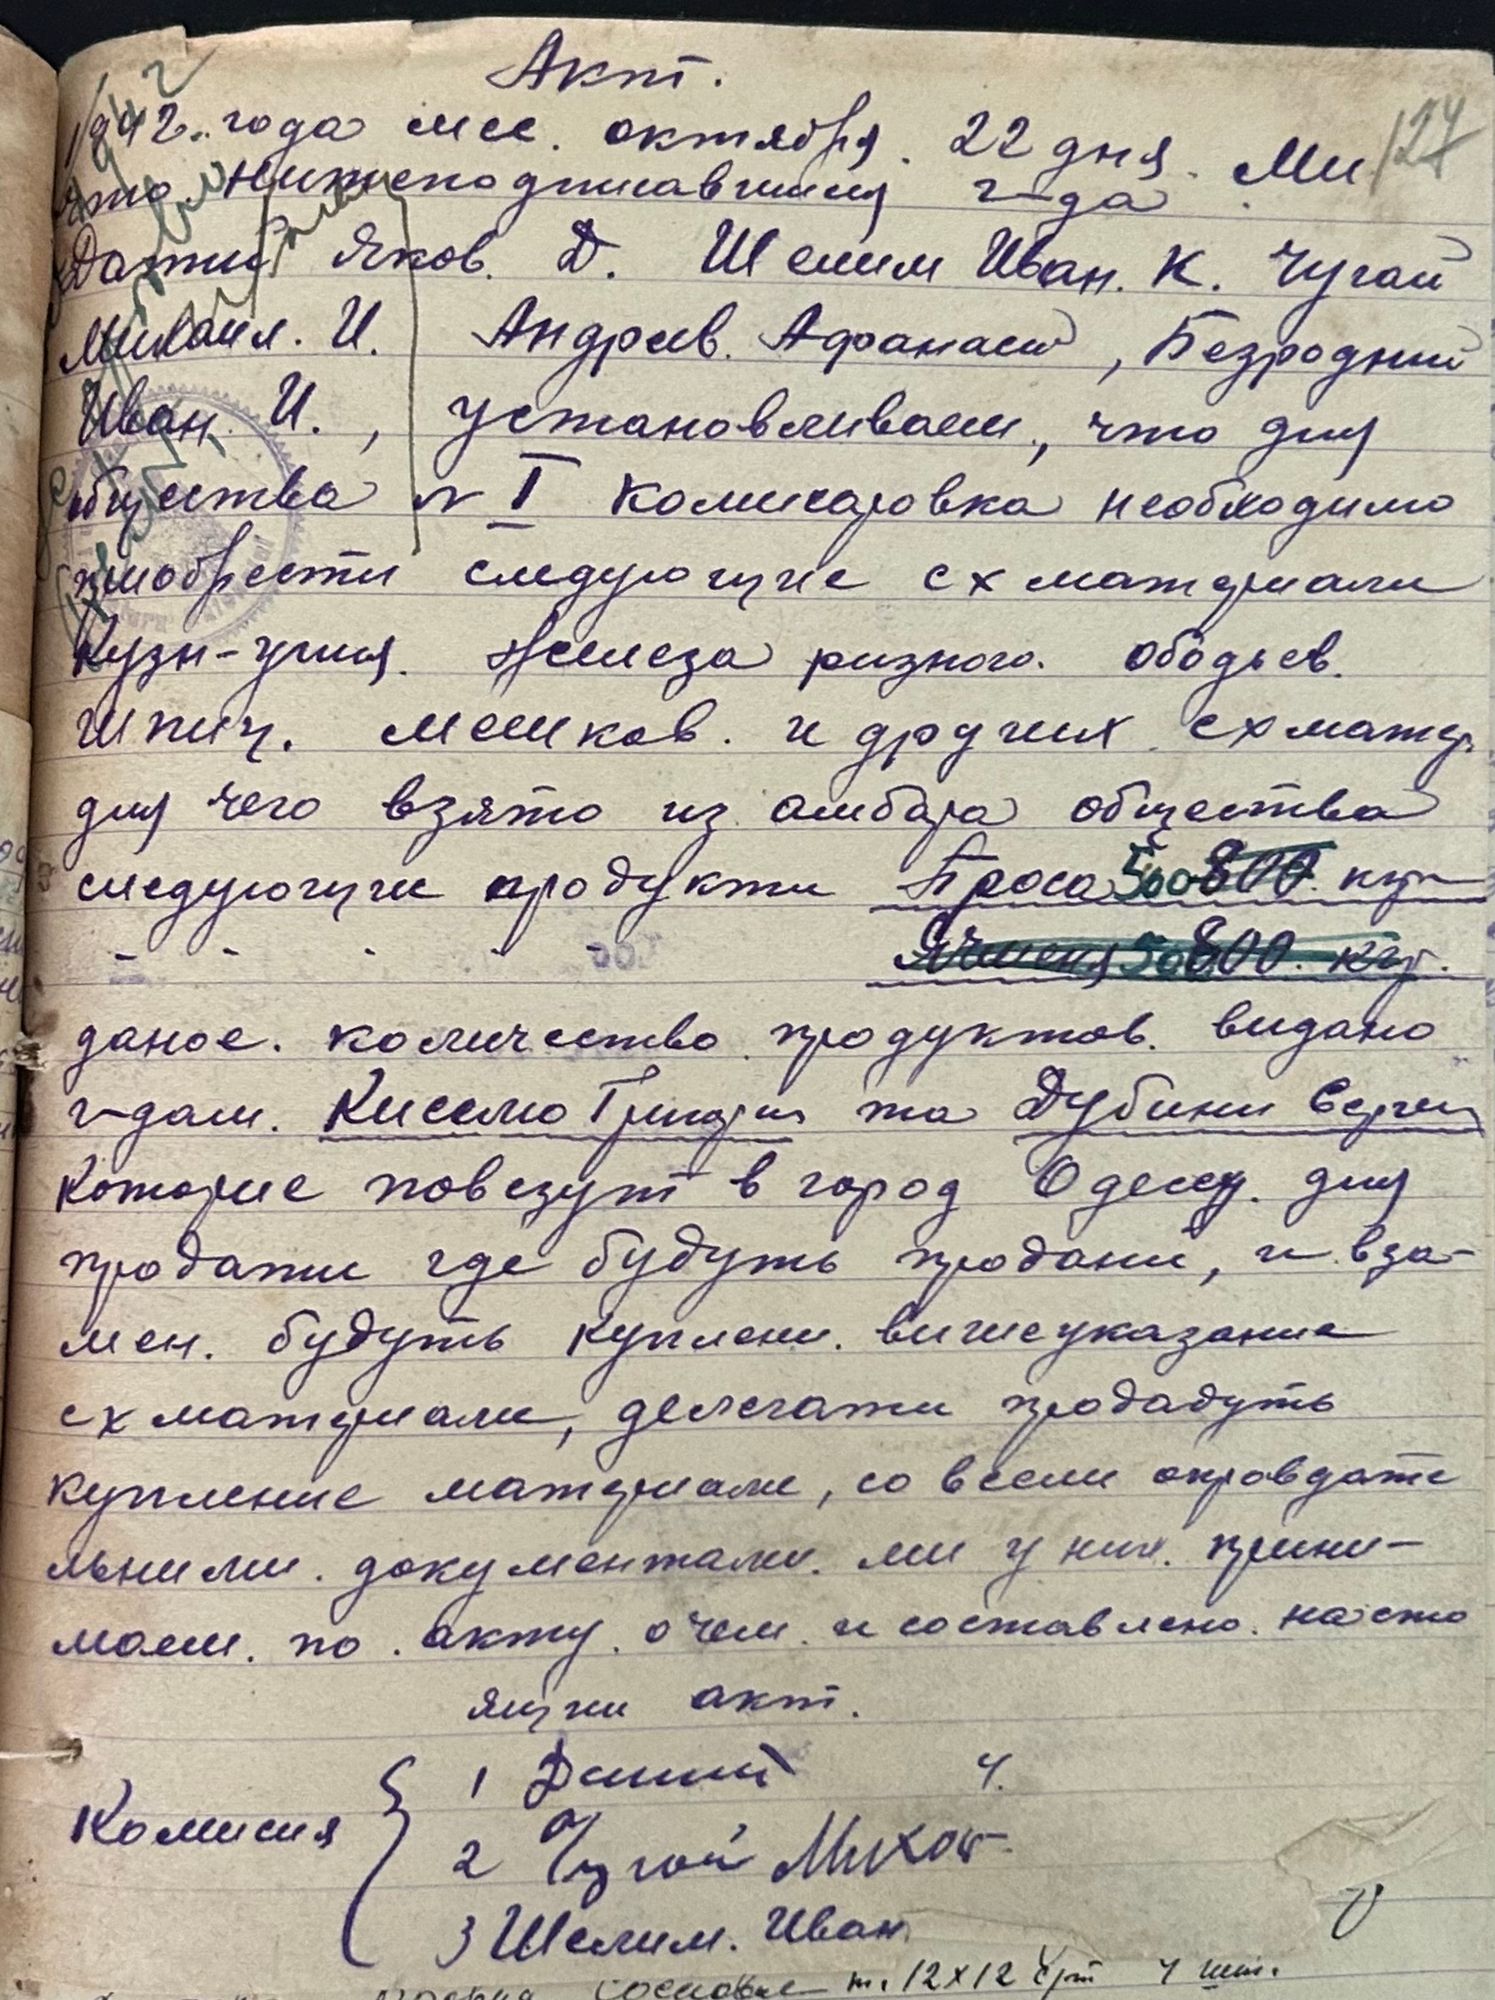 Акт.
127
1942 года мес. октября. 22 дня. Ми
что нижеподписавшиия г-да
Датий Яков. Д. Шелим Иван. К. Чугай
Михаил. И. Андреев. Афанасий, Безродний
Иван. И., установливаем, что для
общества № I Комисаровка необходимо
приобрести следующие сх материали
Кузн-угля. Железа ризного. ободьев.
шпиц. мешков. и других схматер.
для чего взято из амбара общества
следующие продукти Проса 500 800 кгр
- - - - - Ячменя 50 800. кгр.
даное. количество продуктов. видано
г-дам. Киселю Григорию та Дубини Сергею
Которие повезут в город Одессу. для
продажи где будуть продани, и вза-
мен. будуть куплени. вишеуказание
сх материали, делегати продадуть
купление материали, со всеми оправдате
льними. документами. ми у них. прини-
маем. по. акту. о чем. и составлено. насто
ящии акт.
Комисия
1 Датий
2 Чугай Михаи
3 Шелим. Иван
сосновые т. 12х12 4 шт.